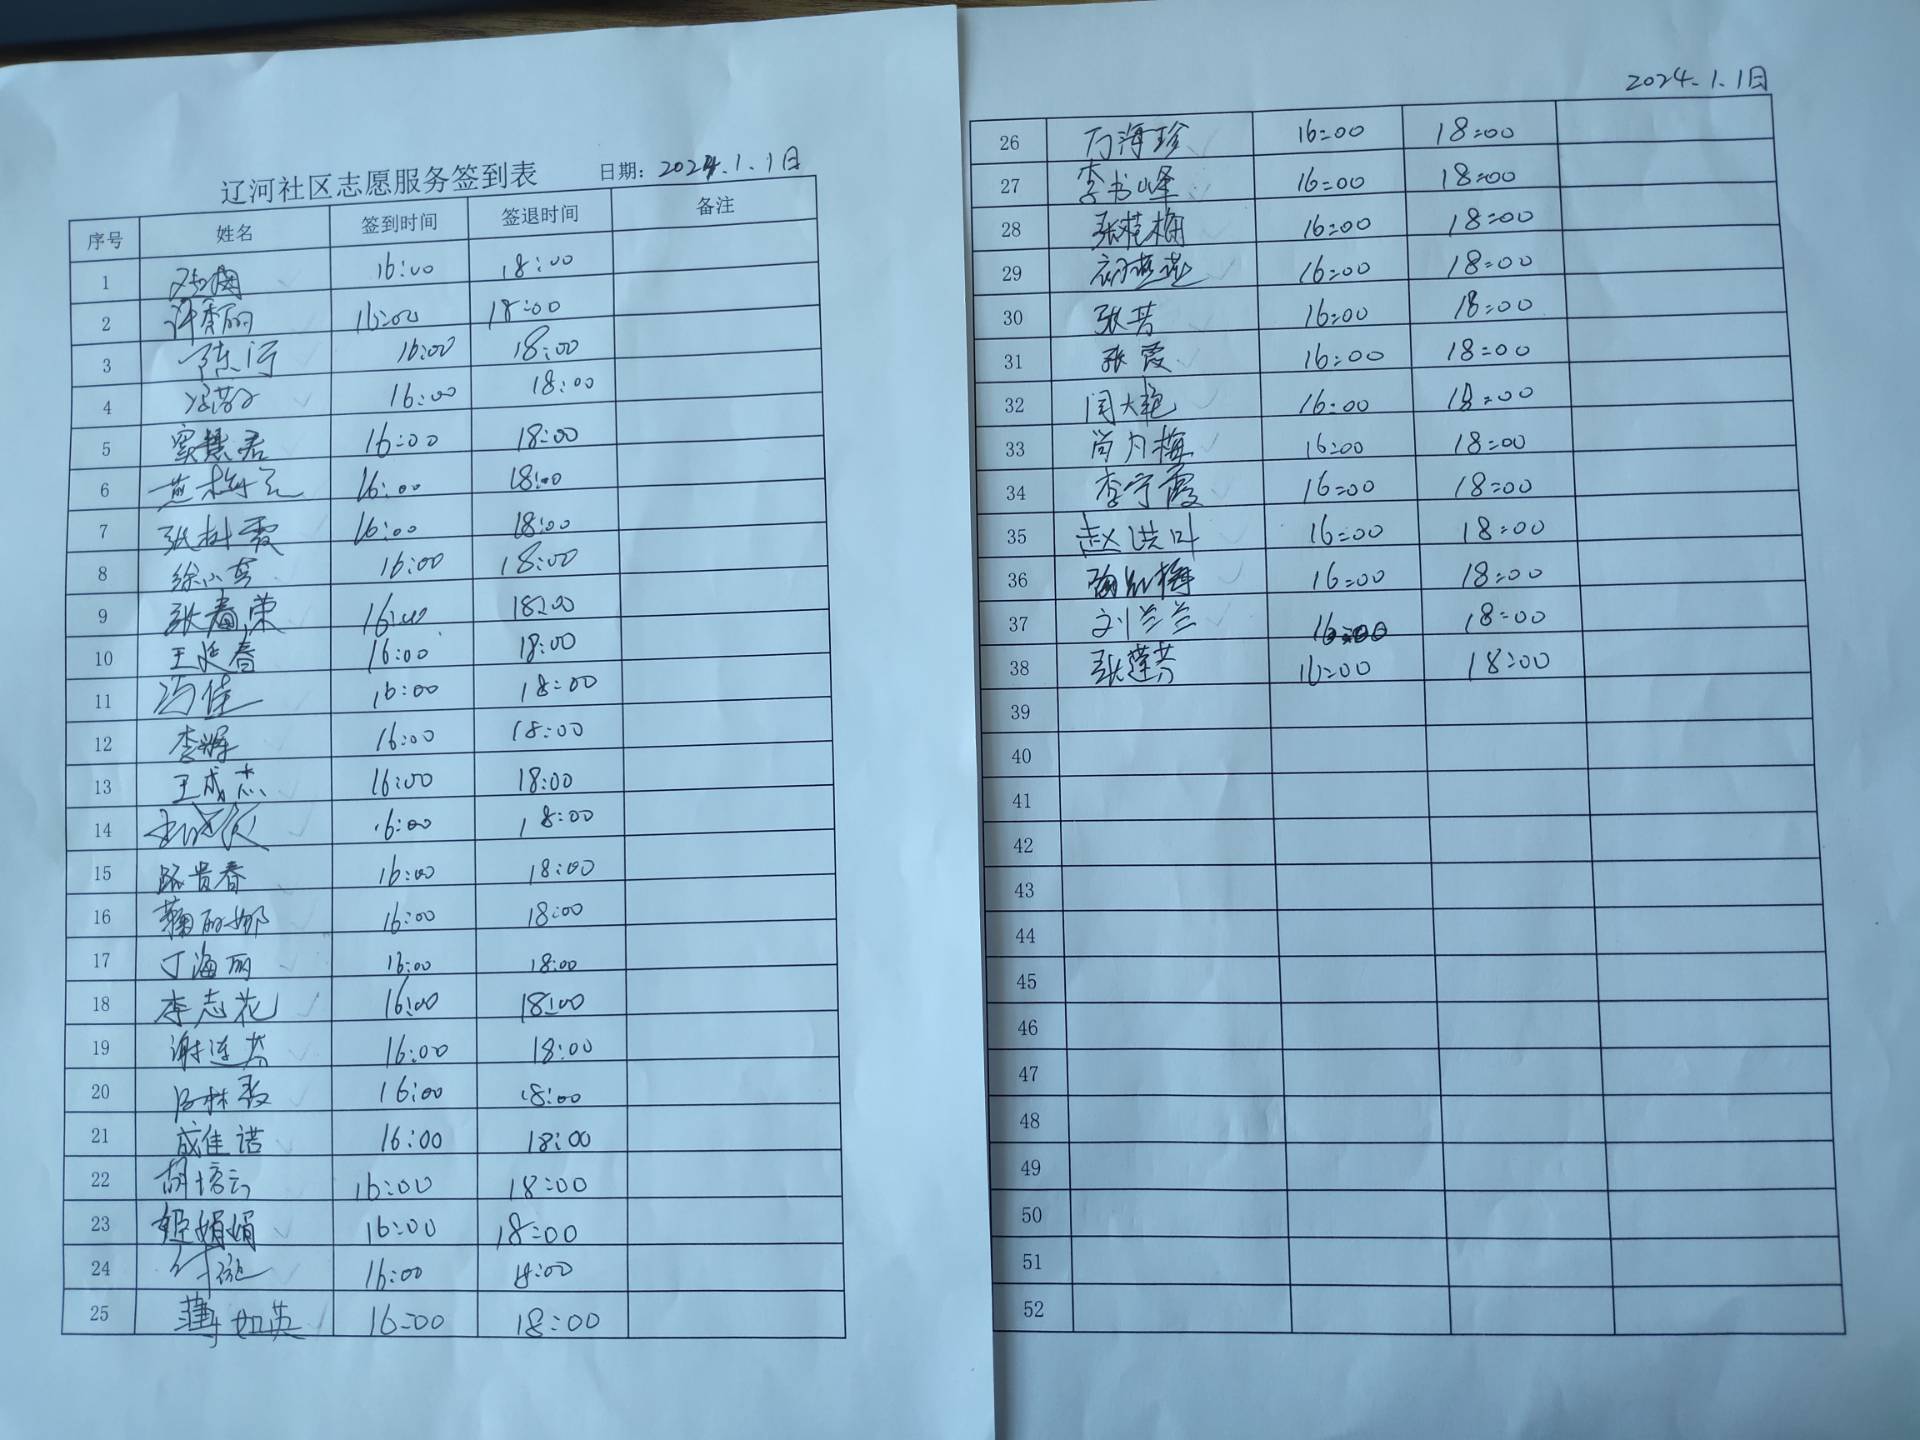 辽河社区志愿服务签到表 日期: 2024.1.1日
序号 姓名 签到时间 签退时间 备注
1 16:00 18:00
2 许秀丽 16:00 18:00
3 16:00 18:00
4 16:00 18:00
5 窦慧君 16:00 18:00
6 16:00 18:00
7 张树霞 16:00 18:00
8 16:00 18:00
9 张春荣 16:00 18:00
10 王延春 16:00 18:00
11 冯佳 16:00 18:00
12 李辉 16:00 18:00
13 王成杰 16:00 18:00
14 16:00 18:00
15 贵春 16:00 18:00
16 鞠丽娜 16:00 18:00
17 丁海丽 16:00 18:00
18 李志花 16:00 18:00
19 谢连芬 16:00 18:00
20 16:00 18:00
21 成佳诺 16:00 18:00
22 胡培云 16:00 18:00
23 姬娟娟 16:00 18:00
24 16:00 18:00
25 如英 16:00 18:00
2024.1.1日
26 万海珍 16:00 18:00
27 李书峰 16:00 18:00
28 张桂梅 16:00 18:00
29 16:00 18:00
30 张芳 16:00 18:00
31 张霞 16:00 18:00
32 闫大艳 16:00 18:00
33 尚月梅 16:00 18:00
34 李宁霞 16:00 18:00
35 赵洪叶 16:00 18:00
36 16:00 18:00
37 刘兰兰 16:00 18:00
38 张莲芳 16:00 18:00
39
40
41
42
43
44
45
46
47
48
49
50
51
52